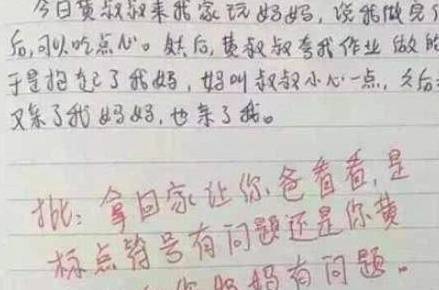 今日黄叔叔来我家玩妈妈,说我做完
后,可以吃点心。然后,黄叔叔夸我作业做的
于是抱起了我妈,妈叫叔叔小心一点,之后
又亲了我妈妈,也亲了我。
批:拿回家让你爸看看,是
标点符号有问题还是你黄
妈有问题。